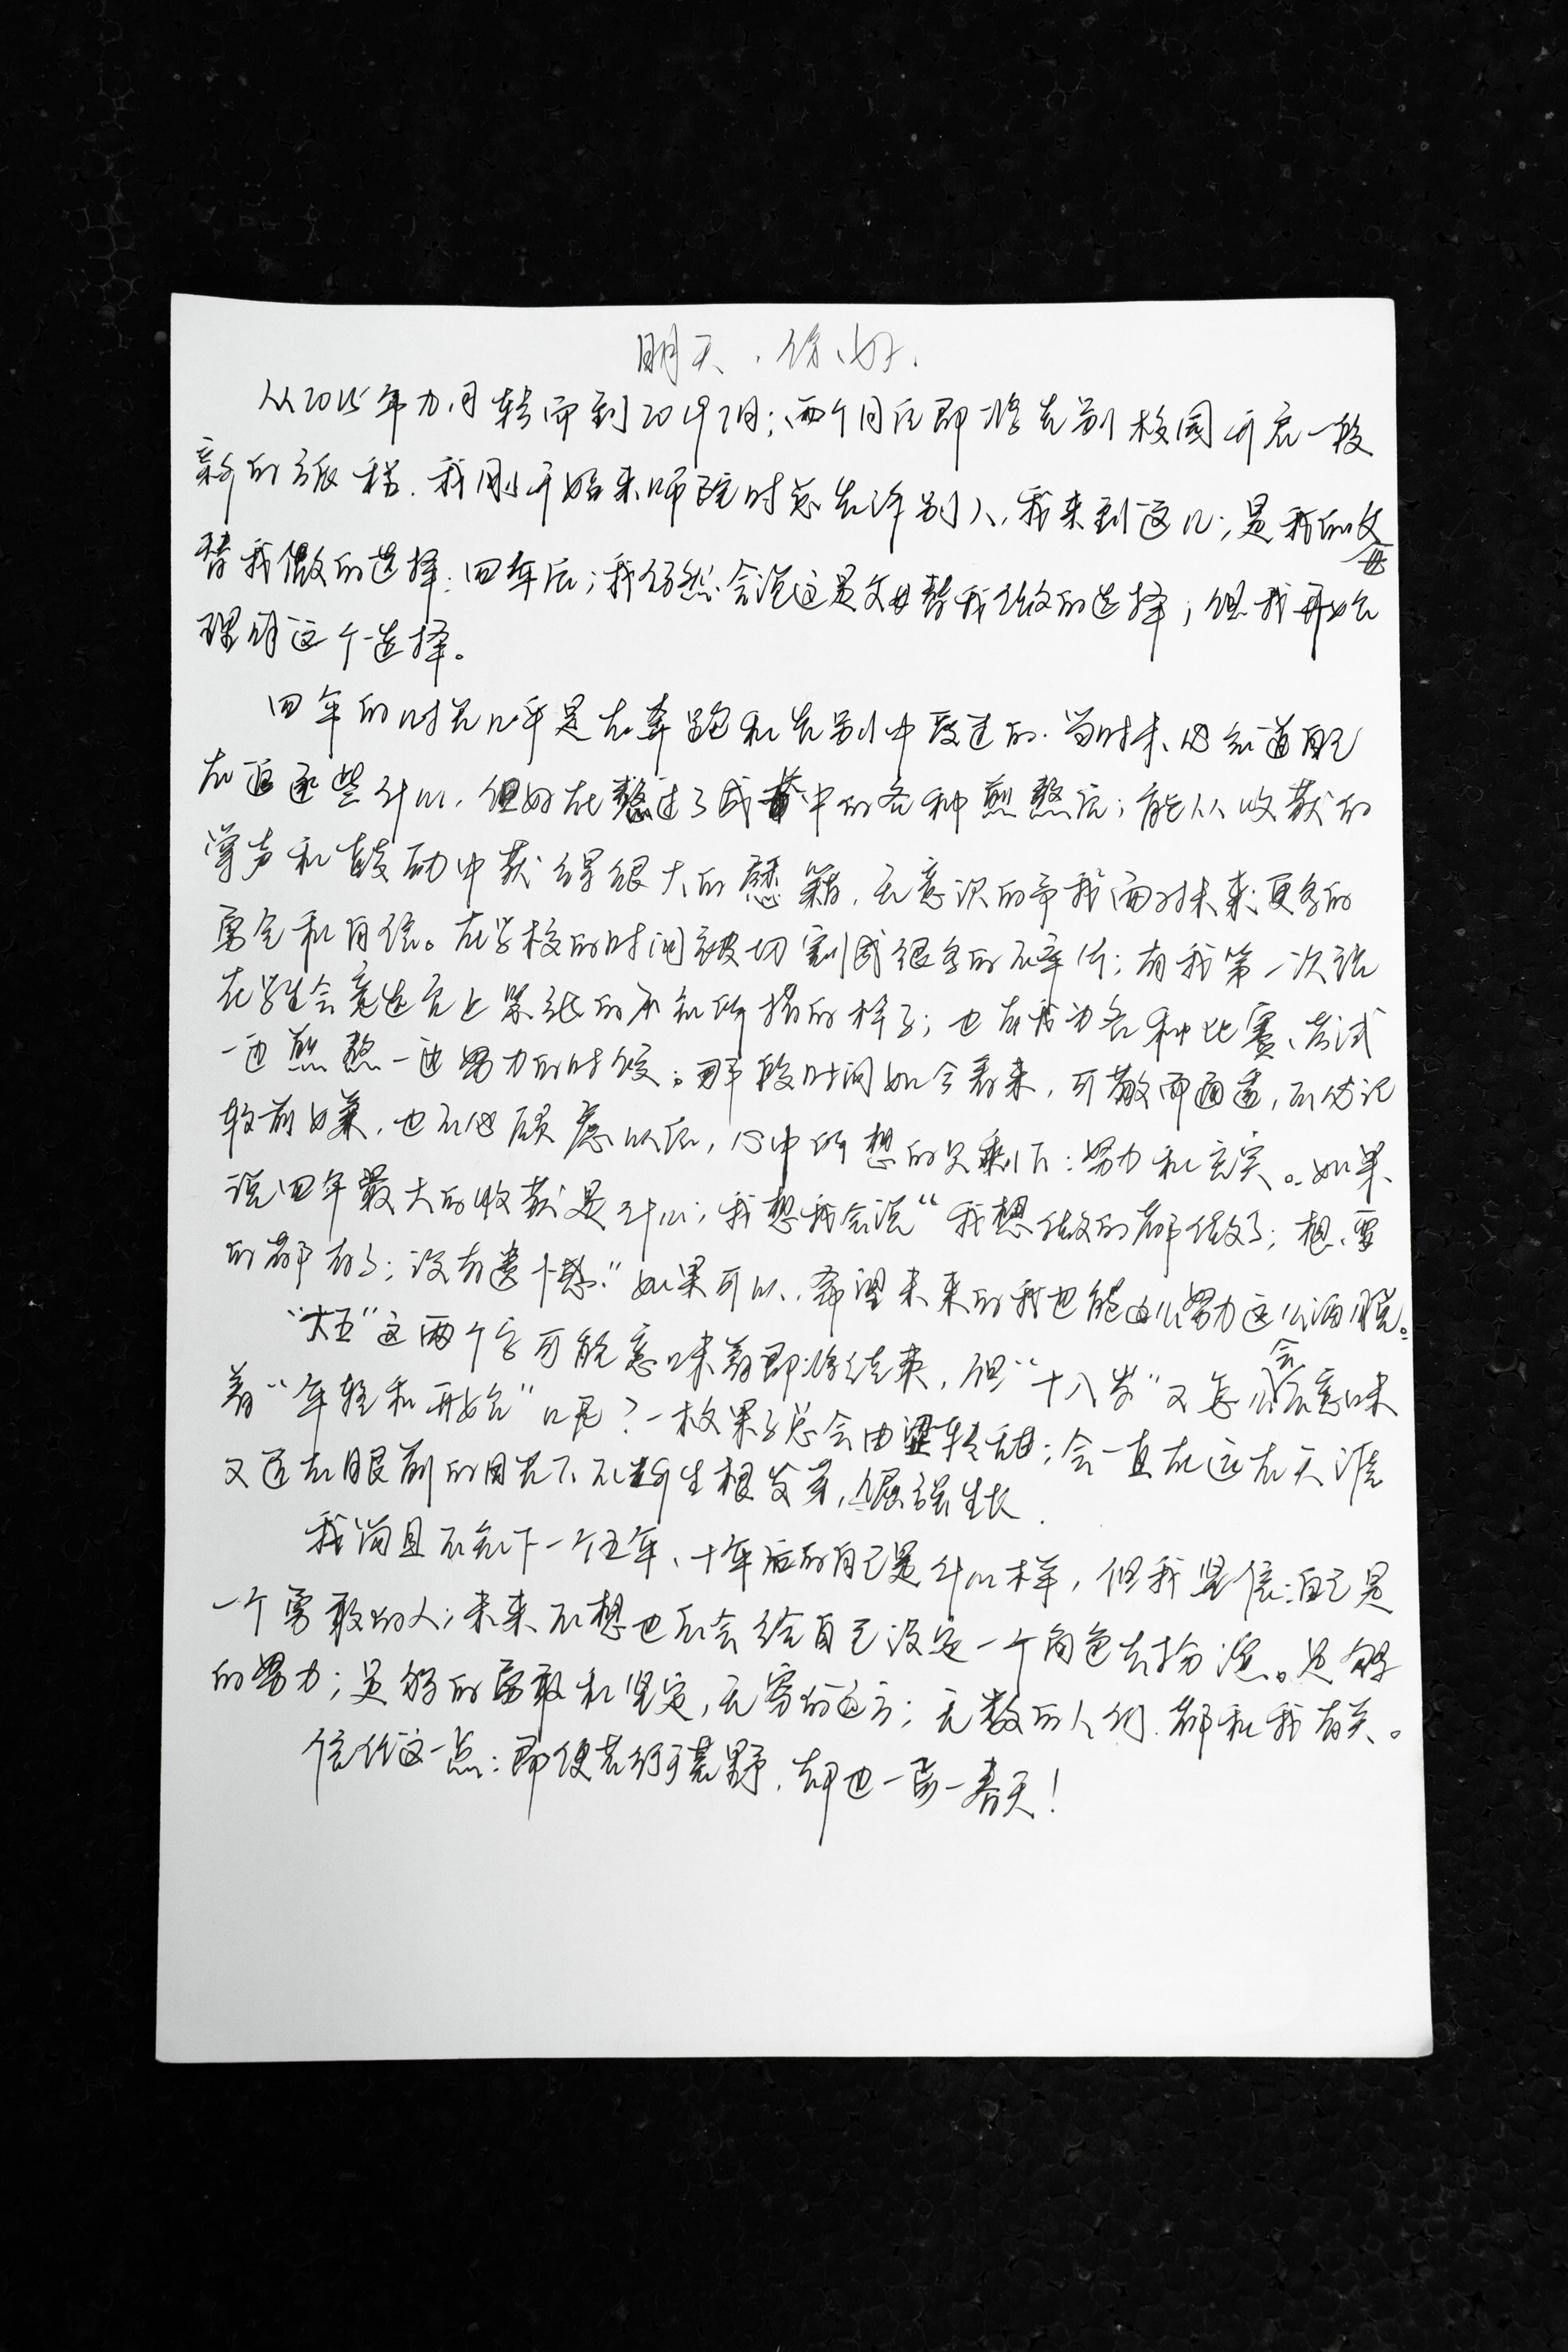 明天，你好。
从2015年九月转而到2019 7月；两个月后即将告别校园开启一段
新的旅程。我刚开始来师院时总告诉别人，我来到这儿，是我的父母
替我做的选择。四年后；我仍然会说这是父母替我做的选择，但我开始
理解这个选择。
四年的时光几乎是在奔跑和告别中度过的。当时未必知道自己
在追逐些什么，但好在熬过了成长中的各种煎熬后；能从收获的
掌声和鼓励中获得很大的慰籍，无意识的带我面对未来更多的
勇气和自信。在学校的时间被切割成很多的碎片；有我第一次站
在学生会竞选台上紧张的不知所措的样子；也有我为各种比赛、考试
一边煎熬一边努力的时候。那段时间如今看来，可散而通透，不必记
较前嫌，也不必顾虑以后，心中所想的只剩下：努力和充实。如果
说四年最大的收获是什么，我想我会说“我想做的都做了；想要
的都有了；没有遗憾。”如果可以，希望未来的我也能这么努力这么洒脱。
“大五”这两个字可能意味着即将结束，但“十八岁”又怎么会不意味
着“年轻和开始”呢？一枚果子总会由涩转甜；会一直在远在天涯
又近在眼前的目光下不断生根发芽，倔强生长。
我尚且不知下一个五年、十年后的自己是什么样，但我坚信：自己是
一个勇敢的人；未来不想也不会给自己设定一个角色去扮演。足够
的努力；足够的勇敢和坚定，无穷的远方；无数的人们，都和我有关。
信任这一点：即使走行荒野，却也一步一春天！